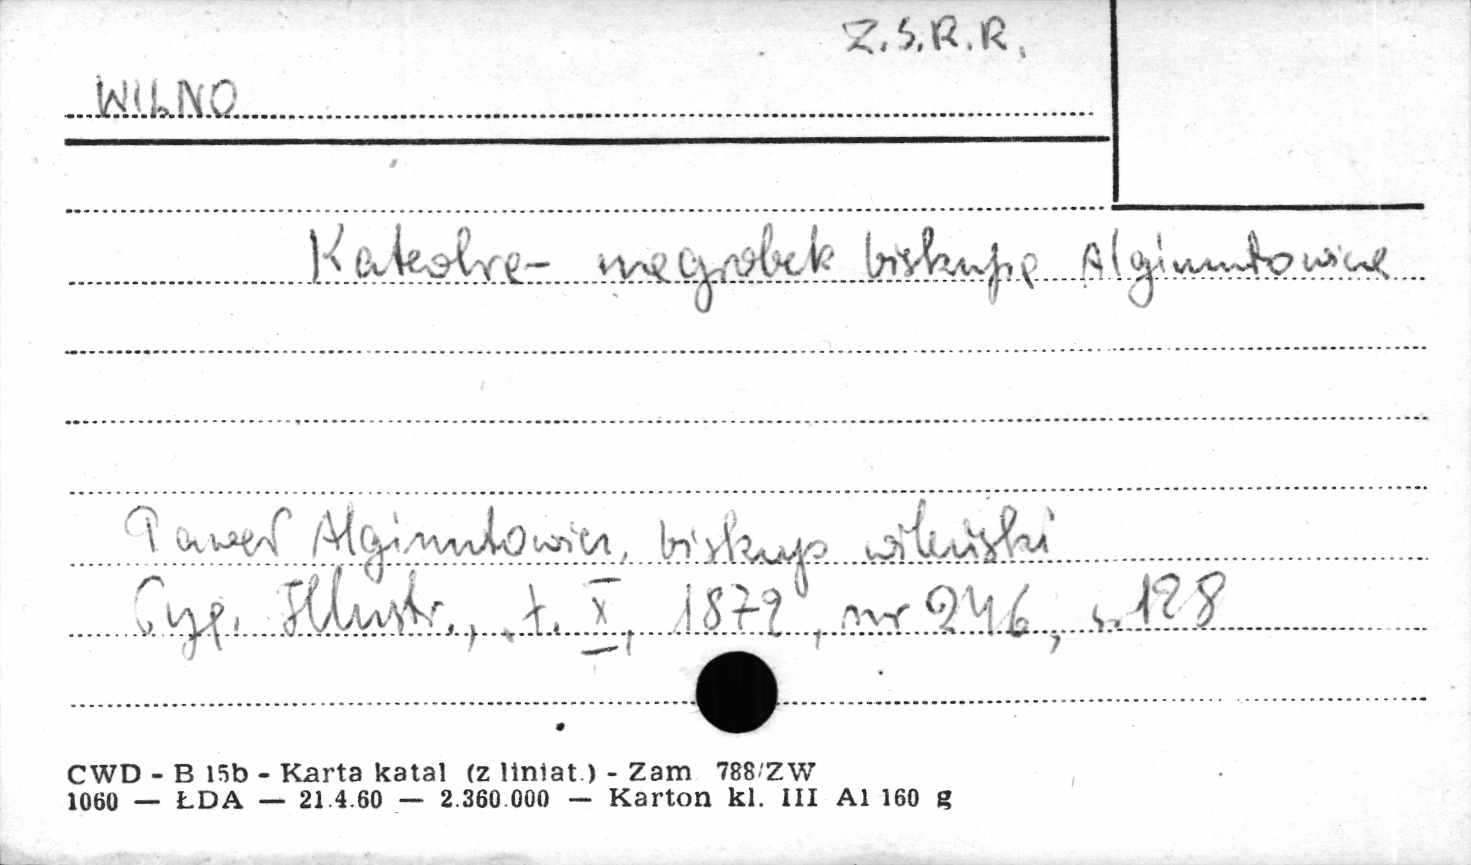 Z.S.R.R.
WILNO
Katedra - nagrobek biskupa Algimuntowicza
Paweł Algimuntowicz, biskup wileński
Tyg. Illustr., t. X, 1872, nr 246, s. 128
CWD - B 15b - Karta katal (z liniat.) - Zam 788/ZW
1060 — ŁDA — 21.4.60 — 2.360.000 — Karton kl. III A1 160 g